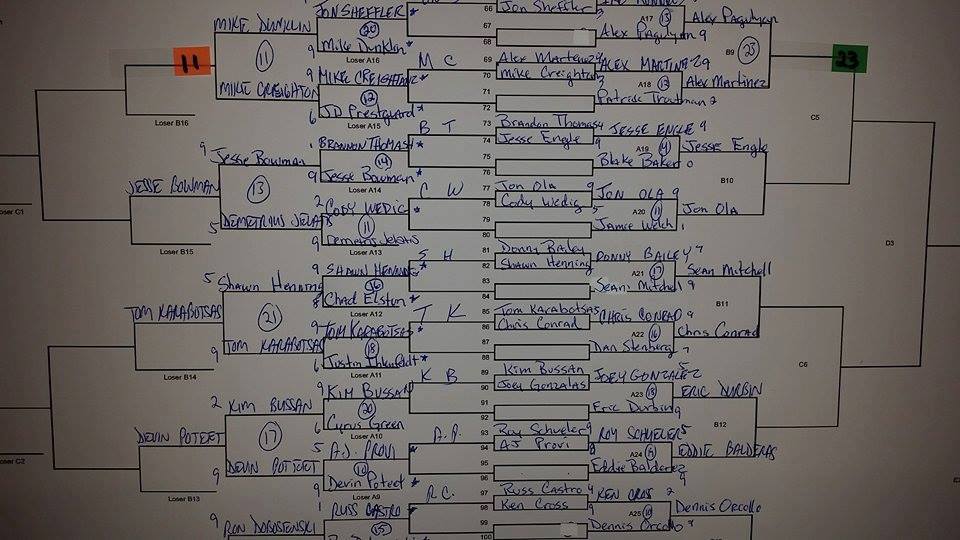 JON SHEFFLER *
66
Jon Sheffler 3
A17 13
Alex Pagulayan
MIKE DUNKLIN
20
67
Alex Pagulayan 9
B9
23
11
11
9 Mike Dunklin *
68
23
Loser A16
M C
69
Alex Martinez
ALEX MARTINEZ 9
9 MIKE CREIGHTON *
70
Mike Creighton
A18 12
Alex Martinez
MIKE CREIGHTON
12
71
Patrick Troutman 2
6 JD Prestguard *
72
C5
Loser B16
Loser A15
B T
73
Brandon Thomas 4
JESSE ENGLE 9
1 BRANNON THOMAS *
74
Jesse Engle 9
A19 4
Jesse Engle
9 Jesse Bowman
14
75
Blake Baker 0
JESSE BOWMAN
9 Jesse Bowman *
76
B10
13
Loser A14
C W
77
Jon Ola 9
JON OLA 9
2 CODY WEDIG *
78
Cody Wedig 5
A20 11
Jon Ola
5 DEMETRIUS JELATIS
11
79
Jamie Welch 1
ser C1
9 Demetrius Jelatis
80
Loser B15
Loser A13
D3
S H
81
Donny Bailey
DONNY BAILEY 7
9 SHAWN HENNING *
82
Shawn Henning
A21 17
Sean Mitchell
5 Shawn Henning
16
83
Sean Mitchell 9
TOM KARABOTSAS
8 Chad Elston *
84
B11
21
Loser A12
T K
85
Tom Karabotsas
CHRIS CONRAD 9
9 TOM KARABOTSAS
86
Chris Conrad
A22 16
Chris Conrad
9 TOM KARABOTSAS
18
87
Dan Stenberg 7
6 *
88
C6
Loser B14
Loser A11
K B
89
Kim Bussan
JOEY GONZALEZ 5
9 KIM BUSSAN
90
Joey Gonzalas
A23 13
ERIC DURBIN
2 KIM BUSSAN
20
91
Eric Durbin 9
DEVIN POTEET
6 Cyrus Green
92
B12
17
Loser A10
A.P.
93
Roy Schueler 9
ROY SCHUELER 5
5 A.J. PROVI *
94
AJ Provi 8
A24 9
EDDIE BALDERAS
9 DEVIN POTEET
10
95
Eddie Balderez 9
ser C2
9 Devin Poteet *
96
Loser B13
Loser A9
R.C.
97
Russ Castro 4
KEN CROSS 2
1 RUSS CASTRO *
98
Ken Cross 9
A25 10
Dennis Orcollo
9 RON DOBOSTENSKI
15
99
Dennis Orcollo 9
100